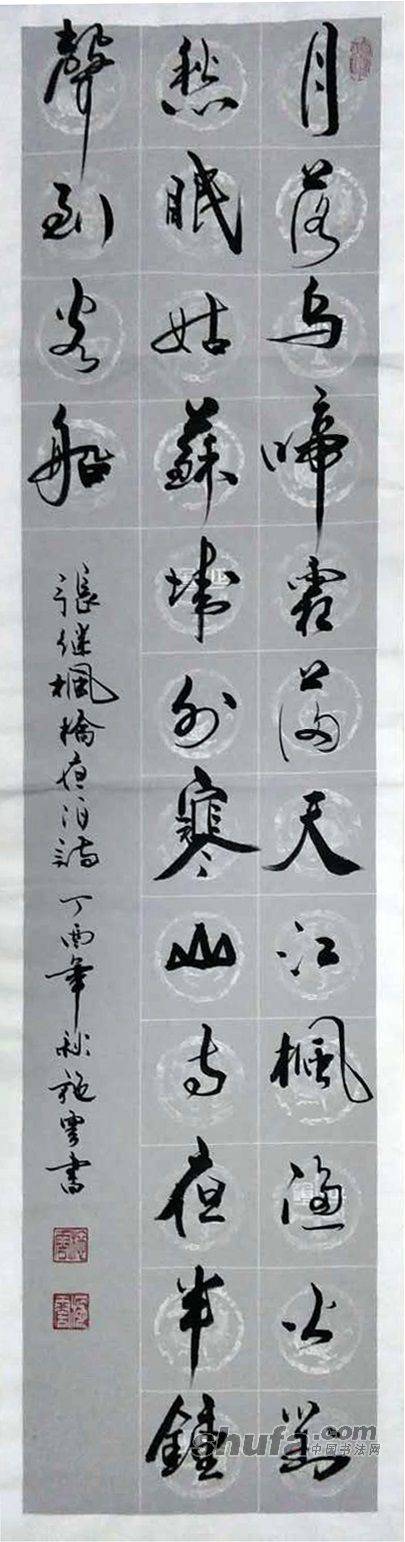 月落烏啼霜滿天江楓漁火對
愁眠姑蘇城外寒山寺夜半鍾
聲到客船
張繼楓橋夜泊詩 丁酉年秋施雲書
shufa.com
中国书法网